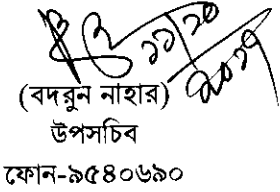 (বদরুন নাহার)
উপসচিব
ফোন-৯৫৪০৬৯০